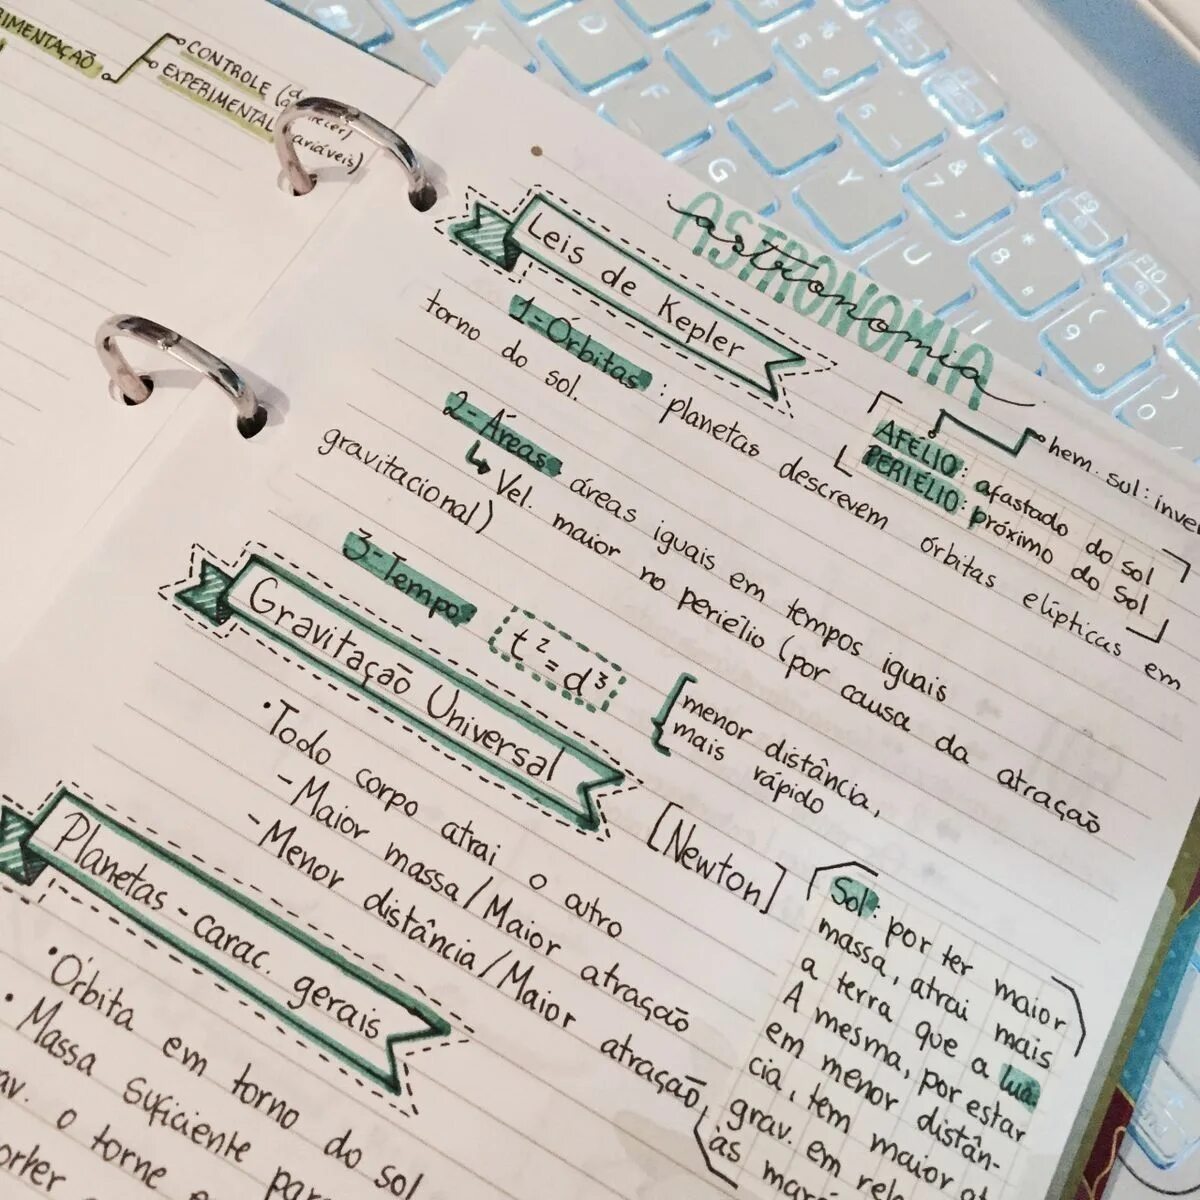 CONTROLE
EXPERIMENTAL
ASTRONOMIA
astronomia
Leis de Kepler
1-Órbitas: planetas descrevem órbitas elípticas em
torno do sol.
AFÉLIO: afastado do sol
PERIÉLIO: próximo do sol
hem. sul:
2-Áreas: áreas iguais em tempos iguais
Vel. maior no periélio (por causa da atração
gravitacional)
3-Tempo: t²=d³
menor distância,
mais rápido
Gravitação Universal
[Newton]
•Todo corpo atrai o outro
-Maior massa/Maior atração
-Menor distância/Maior atração
Sol: por ter maior
massa, atrai mais
a terra que a lua.
A mesma, por estar
em menor distân-
cia, tem maior
grav. em
às
Planetas-carac. gerais
•Órbita em torno do sol
•Massa suficiente
o torne
F
G
T
Y
U
X
D
5
6
7
8
9
0
F8
F9
F10